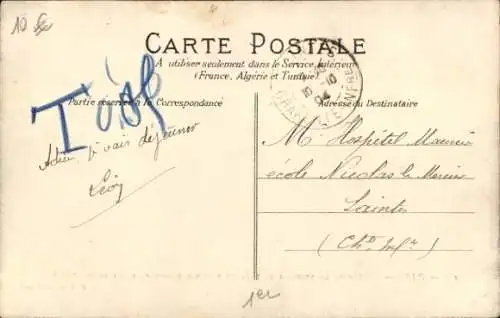 CARTE POSTALE
A utiliser seulement dans le Service Intérieur
(France, Algérie et Tunisie)
Partie réservée à la Correspondance
Adresse du Destinataire
T
Adieu, je vais déjeuner
Léon
M Hospitél Maurice
école Nicolas le Mercier
Saintes
(Ch. Inf.re)